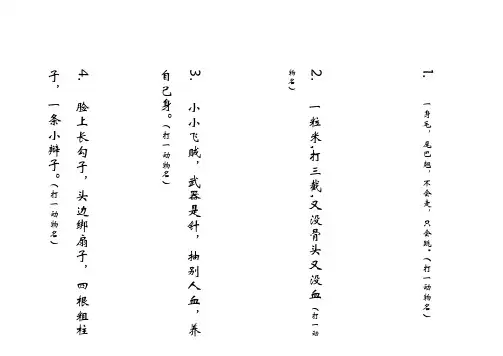 1. 一身毛，尾巴翘，不会走，只会跳。（打一动物名）
2. 一粒米,打三截,又没骨头又没血（打一动
物名）
3. 小小飞贼，武器是针，抽别人血，养
自己身。（打一动物名）
4. 脸上长勾子，头边绑扇子，四根粗柱
子，一条小辫子。（打一动物名）